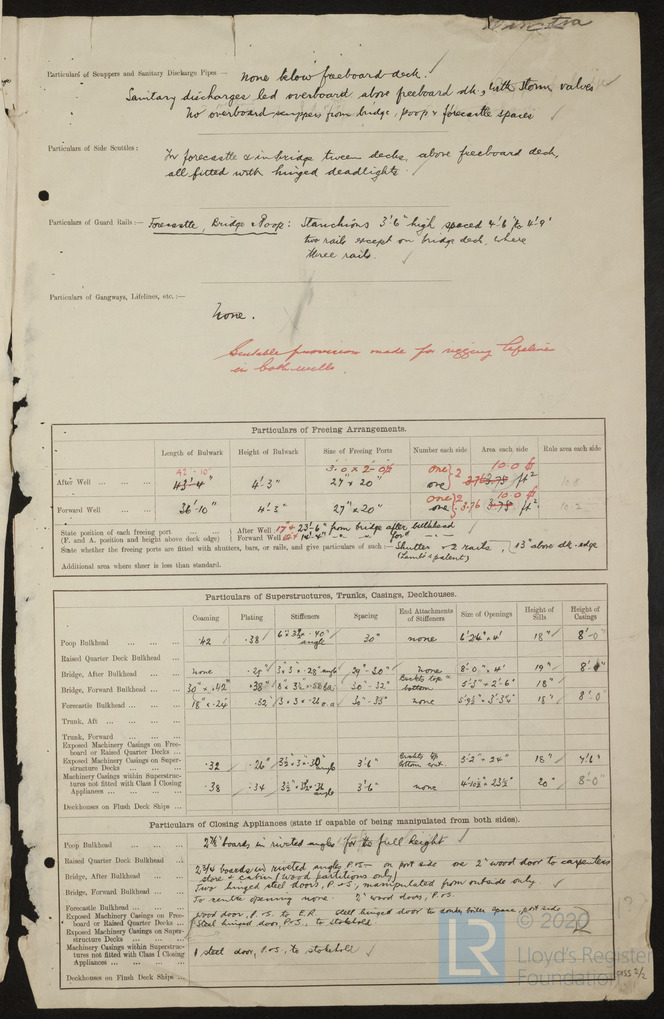 Particulars of Scuppers and Sanitary Discharge Pipes — None below freeboard deck.
Sanitary discharges led overboard above freeboard dk, with storm valves
No overboard scuppers from bridge, poop & forecastle spaces
Particulars of Side Scuttles: In forecastle & in bridge tween decks, above freeboard deck,
all fitted with hinged deadlights.
Particulars of Guard Rails:— Forecastle, Bridge & Poop: Stanchions 3'6" high spaced 4'-6" to 4'-9"
two rails except on bridge deck, where
three rails.
Particulars of Gangways, Lifelines, etc.:—
None.
Suitable provision made for rigging lifelines
in both wells.
Particulars of Freeing Arrangements.
Length of Bulwark Height of Bulwark Size of Freeing Ports Number each side Area each side Rule area each side
42'-10" 3'-0 x 2'-0 one 2 10.0 ft
After Well 43'-4" 4'-3" 27" x 20" one 3.76 3.75 ft² 10.8
one 2 10.0 ft
Forward Well 36'-10" 4'-3" 27" x 20" one 3.76 3.75 ft² 10.2
State position of each freeing port After Well 23'-6" from bridge after bulkhead
(F. and A. position and height above deck edge) Forward Well " " for'd " "
State whether the freeing ports are fitted with shutters, bars, or rails, and give particulars of such:— Shutter & 2 rails, 13" above dk. edge
(Lamb's patent)
Additional area where sheer is less than standard.
Particulars of Superstructures, Trunks, Casings, Deckhouses.
Coaming Plating Stiffeners Spacing End Attachments of Stiffeners Size of Openings Height of Sills Height of Casings
Poop Bulkhead .42 .38 6" x 3½ x .40" angle 30" none 6'2½" x 4' 18" 8'-0"
Raised Quarter Deck Bulkhead
Bridge, After Bulkhead none .25" 3" x 3" x .28" angle 29"-30" none 8'-0" x 4' 19" 8'-0"
Bridge, Forward Bulkhead 30" x .42" .38" 30"-32" Brckts top & bottom 5'-3" x 2'-6" 18"
Forecastle Bulkhead 18" x .24 .22" 3 x 3 x .26 o.a 30"-33" none 18" 8'-0
Trunk, Aft
Trunk, Forward
Exposed Machinery Casings on Freeboard or Raised Quarter Decks
Exposed Machinery Casings on Superstructure Decks .32 .26" 3½" x 3" x .30" angle 3'6" Brckts top bottom cont. 5'-2" x 24" 18" 7'6"
Machinery Casings within Superstructures not fitted with Class I Closing Appliances .38 .34 angle 3'-6" none 20" 8'-0"
Deckhouses on Flush Deck Ships
Particulars of Closing Appliances (state if capable of being manipulated from both sides).
Poop Bulkhead 2½" boards in riveted angles for the full height
Raised Quarter Deck Bulkhead
Bridge, After Bulkhead 2¾ boards in riveted angles P.&S — on port side one 2" wood door to carpenters
store & cabin (wood partitions only)
Bridge, Forward Bulkhead Two hinged steel doors, P. & S., manipulated from outside only.
Forecastle Bulkhead To centre opening none. 2" wood doors, P.&S.
Exposed Machinery Casings on Freeboard or Raised Quarter Decks wood door, P. & S. to E.R. Steel hinged door to donkey boiler space, port side
Exposed Machinery Casings on Superstructure Decks Steel hinged door, P.&S., to stokehold
Machinery Casings within Superstructures not fitted with Class I Closing Appliances 1 steel door, P.&S., to stokehold
Deckhouses on Flush Deck Ships
© 2020
LR
Lloyd's Register
Foundation